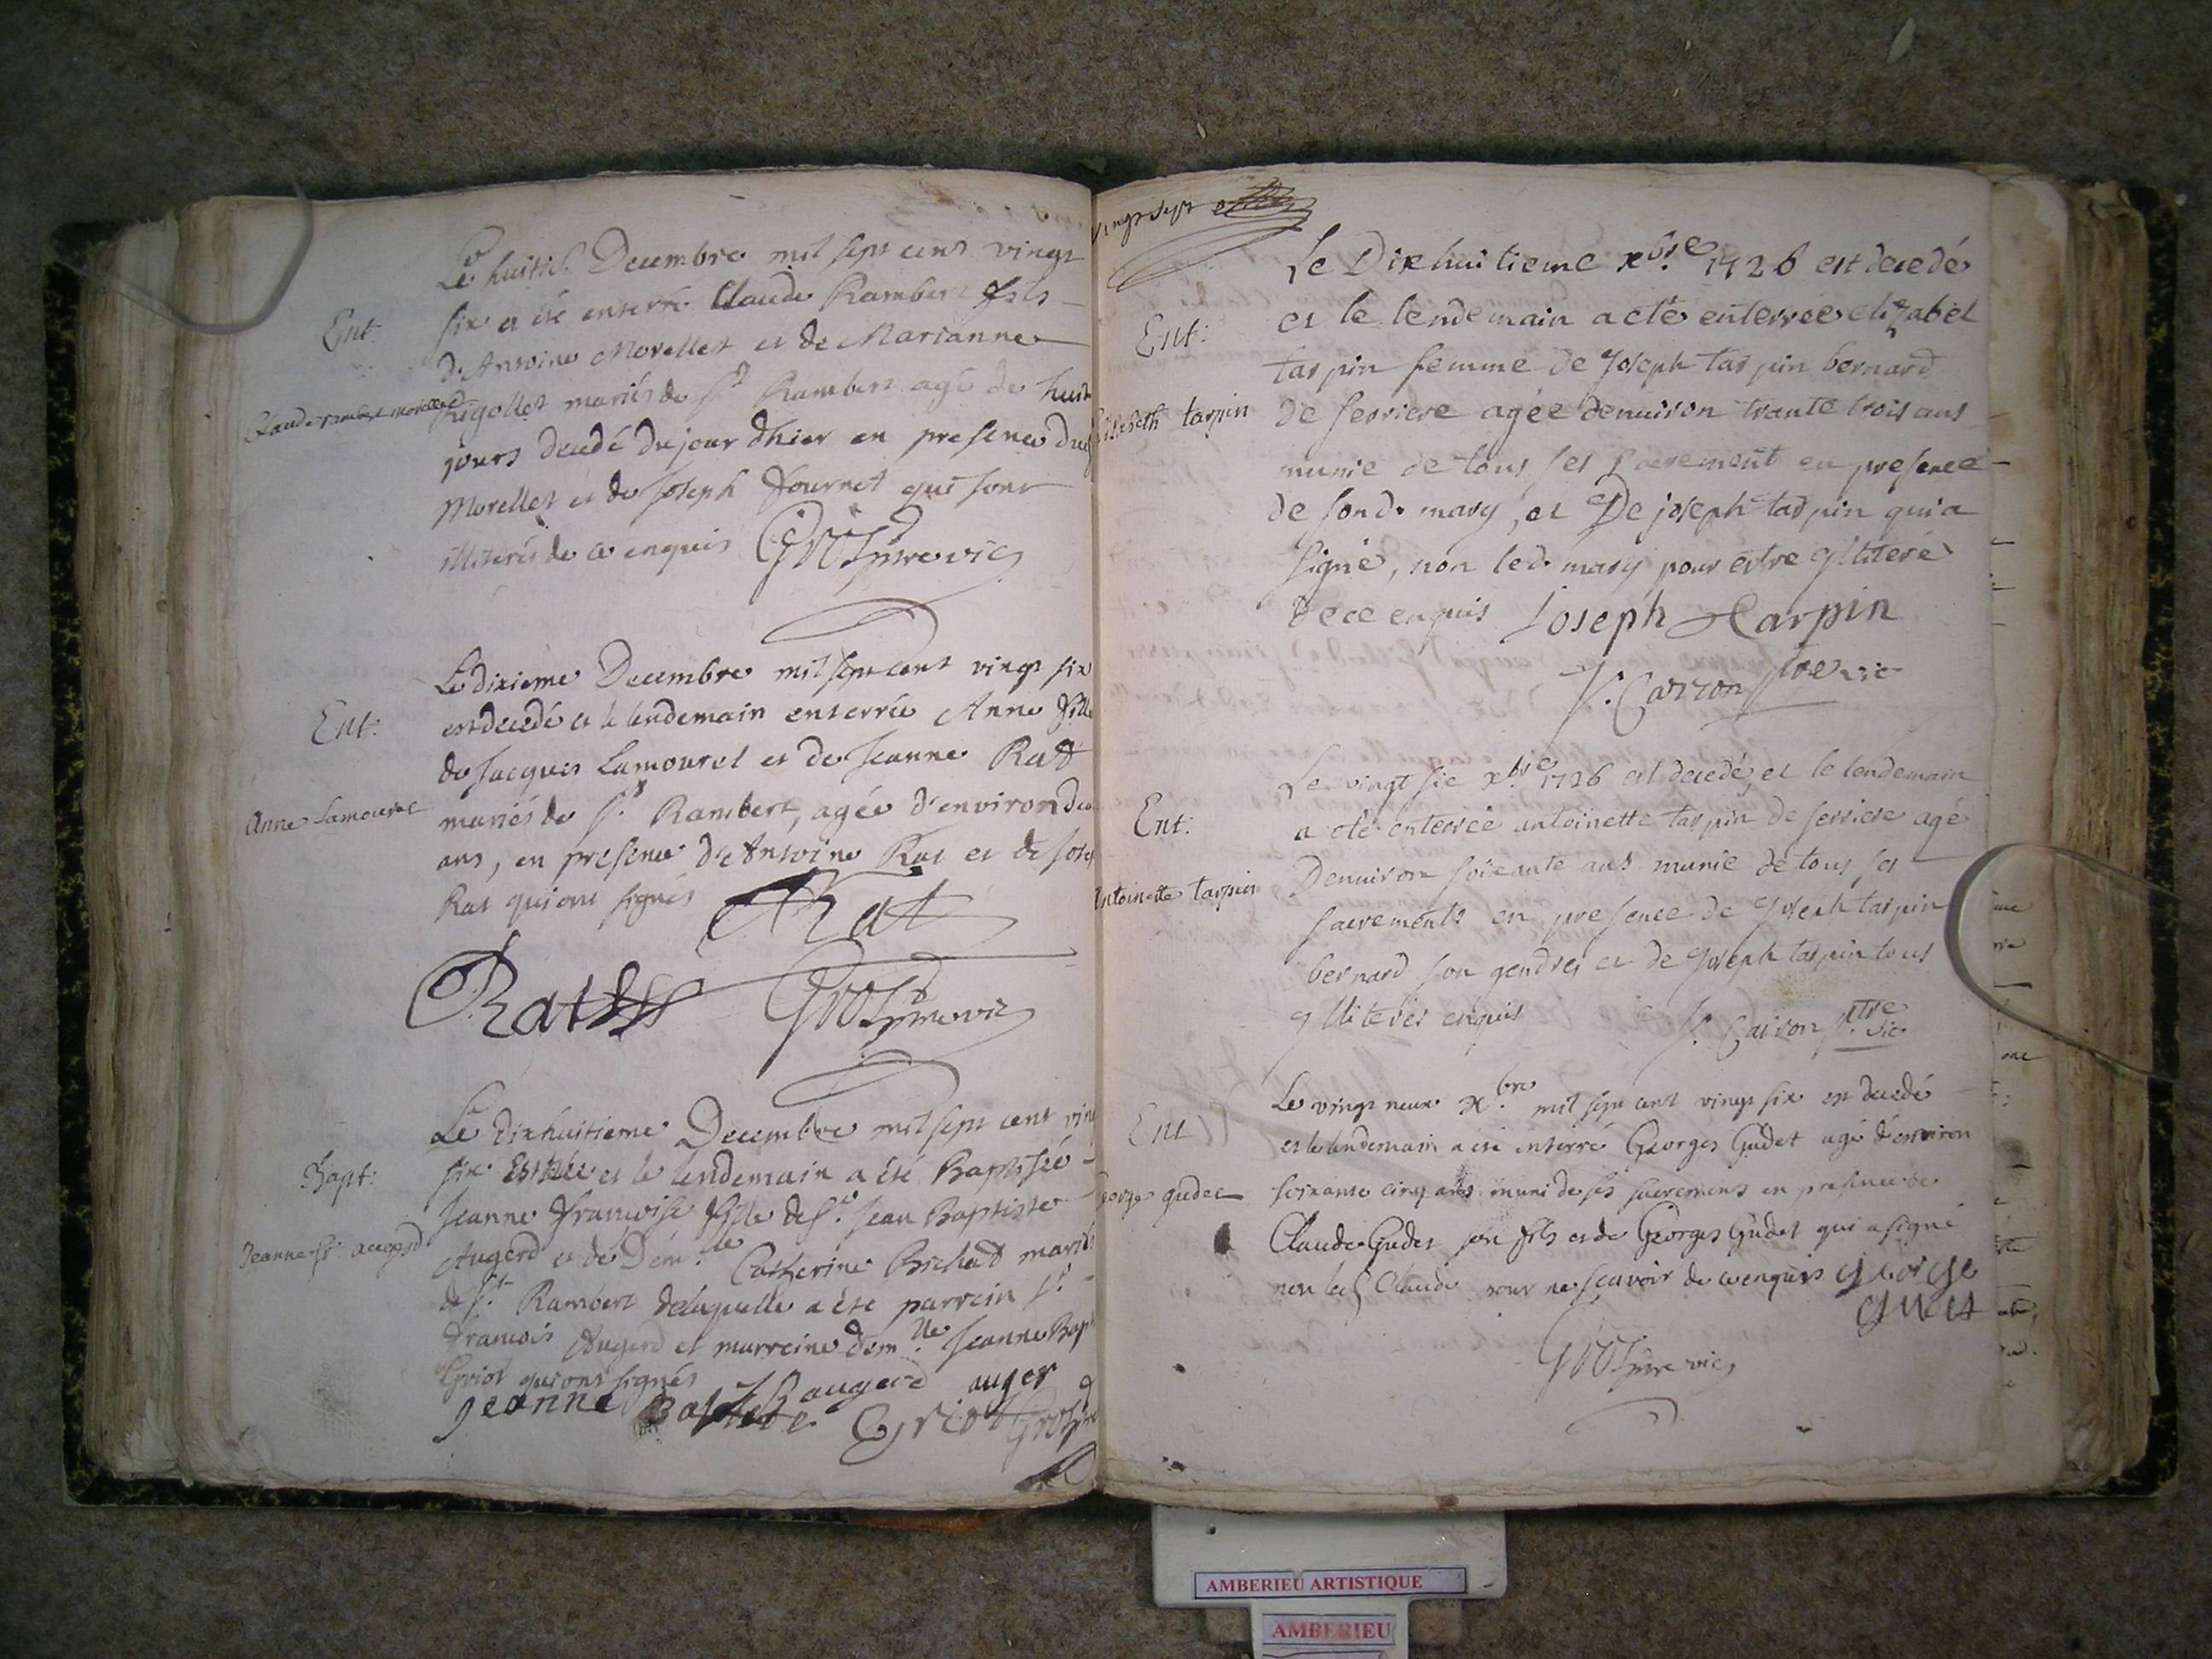 Le huitie. Decembre mil sept cens vingt
Ent. six a été enterré Claude Rambert fils
d'Antoine Morellet et de Marianne
Claude rambert morellet
Rigollet mariés de St Rambert agé de huit
jours decedé du jour d'hier en presence dud
Morellet et de Joseph Fournet qui sont
illiterés de ce enquis
Le dixieme Decembre mil sept cent vingt six
Ent. est decedé et le lendemain enterrée Anne fille
de Jacques Lamouret et de Jeanne Rat
Anne Lamouret
mariés de St. Rambert, agée d'environ
ans, en presence d'Antoine Rat et de Josep
Rat qui ont signés Rat
Rat
Le dixhuitieme Decembre mil sept cent ving
Bapt. six est née et le lendemain a été Baptisée
Jeanne francoise fille de Sr. Jean Baptiste
Jeanne fr. augerd
Augerd et de Dem.lle Catherine Bichat mariés
de St. Rambert de laquelle a été parrein Sr.
francois Augerd et marreine dem.lle Jeanne Bap
Griot qui ont signés
augerd auger
jeanne Baptiste Griot
vingt sept
Le Dixhuitieme xbr.e 1726 est decedé
Ent. et le lendemain a eté enterrée elizabet
tarpin femme de Joseph tarpin bernard
Elizabeth tarpin
de serriere agée denuiron trante trois ans
munie de tous ses Sacrement en presence
de sond. mary, et De joseph tarpin qui a
signé, non led. mary pour estre yllitere
de ce enquis Joseph Tarpin
Le vingt sie xbr.e 1726 est decedé, et le lendemain
Ent. a eté enterrée antoinette tarpin de serriere agé
Antoinette tarpin
Denuiron soixante ans munie de tous ses
sacrements en presence de Joseph tarpin
bernard son gendre, et de Joseph tarpin tous
ylliterés enquis
Le vingt neuf xbre. mil sept cent vingt six est decedé
Ent. et le lendemain a été enterré Georges Gudet agé d'environ
George gudet
soixante cinq ans muni de ses sacremens en presence de
Claude Gudet son fils et de Georges Gudet qui a signé
non led Claude pour ne sçavoir de ce enquis george
AMBERIEU ARTISTIQUE
AMBERIEU